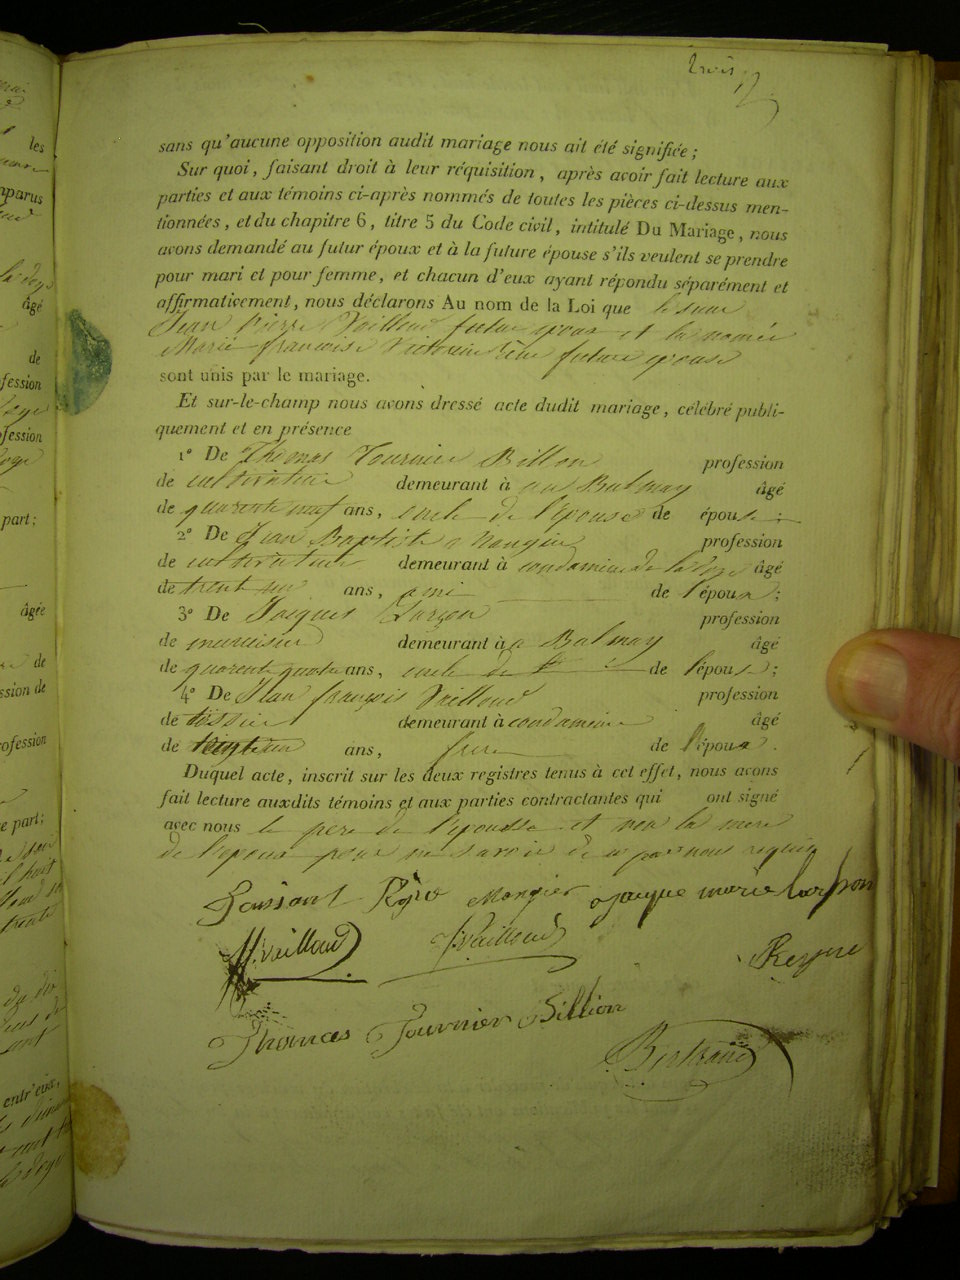 trois
sans qu'aucune opposition audit mariage nous ait été signifiée ;
Sur quoi, faisant droit à leur réquisition, après avoir fait lecture aux
parties et aux témoins ci-après nommés de toutes les pièces ci-dessus men-
tionnées, et du chapitre 6, titre 5 du Code civil, intitulé Du Mariage, nous
avons demandé au futur époux et à la future épouse s'ils veulent se prendre
pour mari et pour femme, et chacun d'eux ayant répondu séparément et
affirmativement, nous déclarons Au nom de la Loi que le sieur
Jean Pierre Vailloud futur epoux et la nomée
Marie françoise Victoire future epouse
sont unis par le mariage.
Et sur-le-champ nous avons dressé acte dudit mariage, célébré publi-
quement et en présence
1° De Thomas Tournier Billon profession
de cultivateur demeurant à au Balmay âgé
de quarente neuf ans, oncle de l'épouse de épouse ;
2° De Jean Baptiste profession
de cultivateur demeurant à condamine de la Doye âgé
de trent ans, ami de l'époux ;
3° De Jacques profession
de demeurant à a Balmay âgé
de quarente quatre ans, oncle de de l'épouse ;
4° De Jean françois Vailloud profession
de tissier demeurant à condamine âgé
de ans, frere de l'époux .
Duquel acte, inscrit sur les deux registres tenus à cet effet, nous avons
fait lecture auxdits témoins et aux parties contractantes qui ont signé
avec nous le pere de l'epousse et non la mere
de l'epoux pour ne savoir de ce par nous requis
jaque marie
Vailloud J. Vailloud
Thomas Tournier Billion
Bertrand